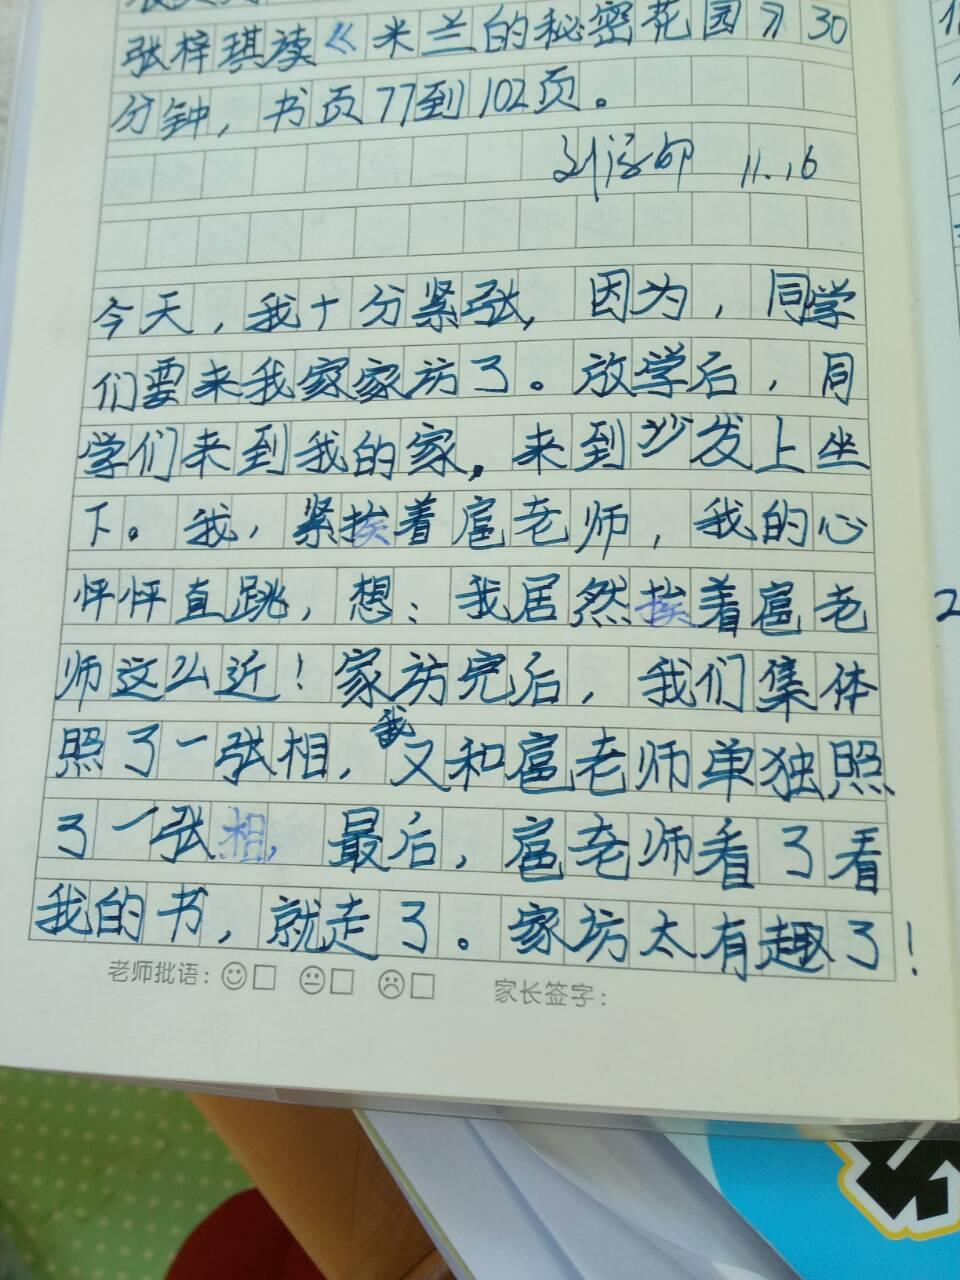 张梓琪读《米兰的秘密花园》30
分钟，书页77到102页。
11.16
今天，我十分紧张，因为，同学
们要来我家家访了。放学后，同
学们来到我的家，来到沙发上坐
下。我，紧挨着扈老师，我的心
怦怦直跳，想：我居然挨着扈老
师这么近！家访完后，我们集体
照了一张相，我又和扈老师单独照
了一张相，最后，扈老师看了看
我的书，就走了。家访太有趣了！
老师批语：
家长签字：